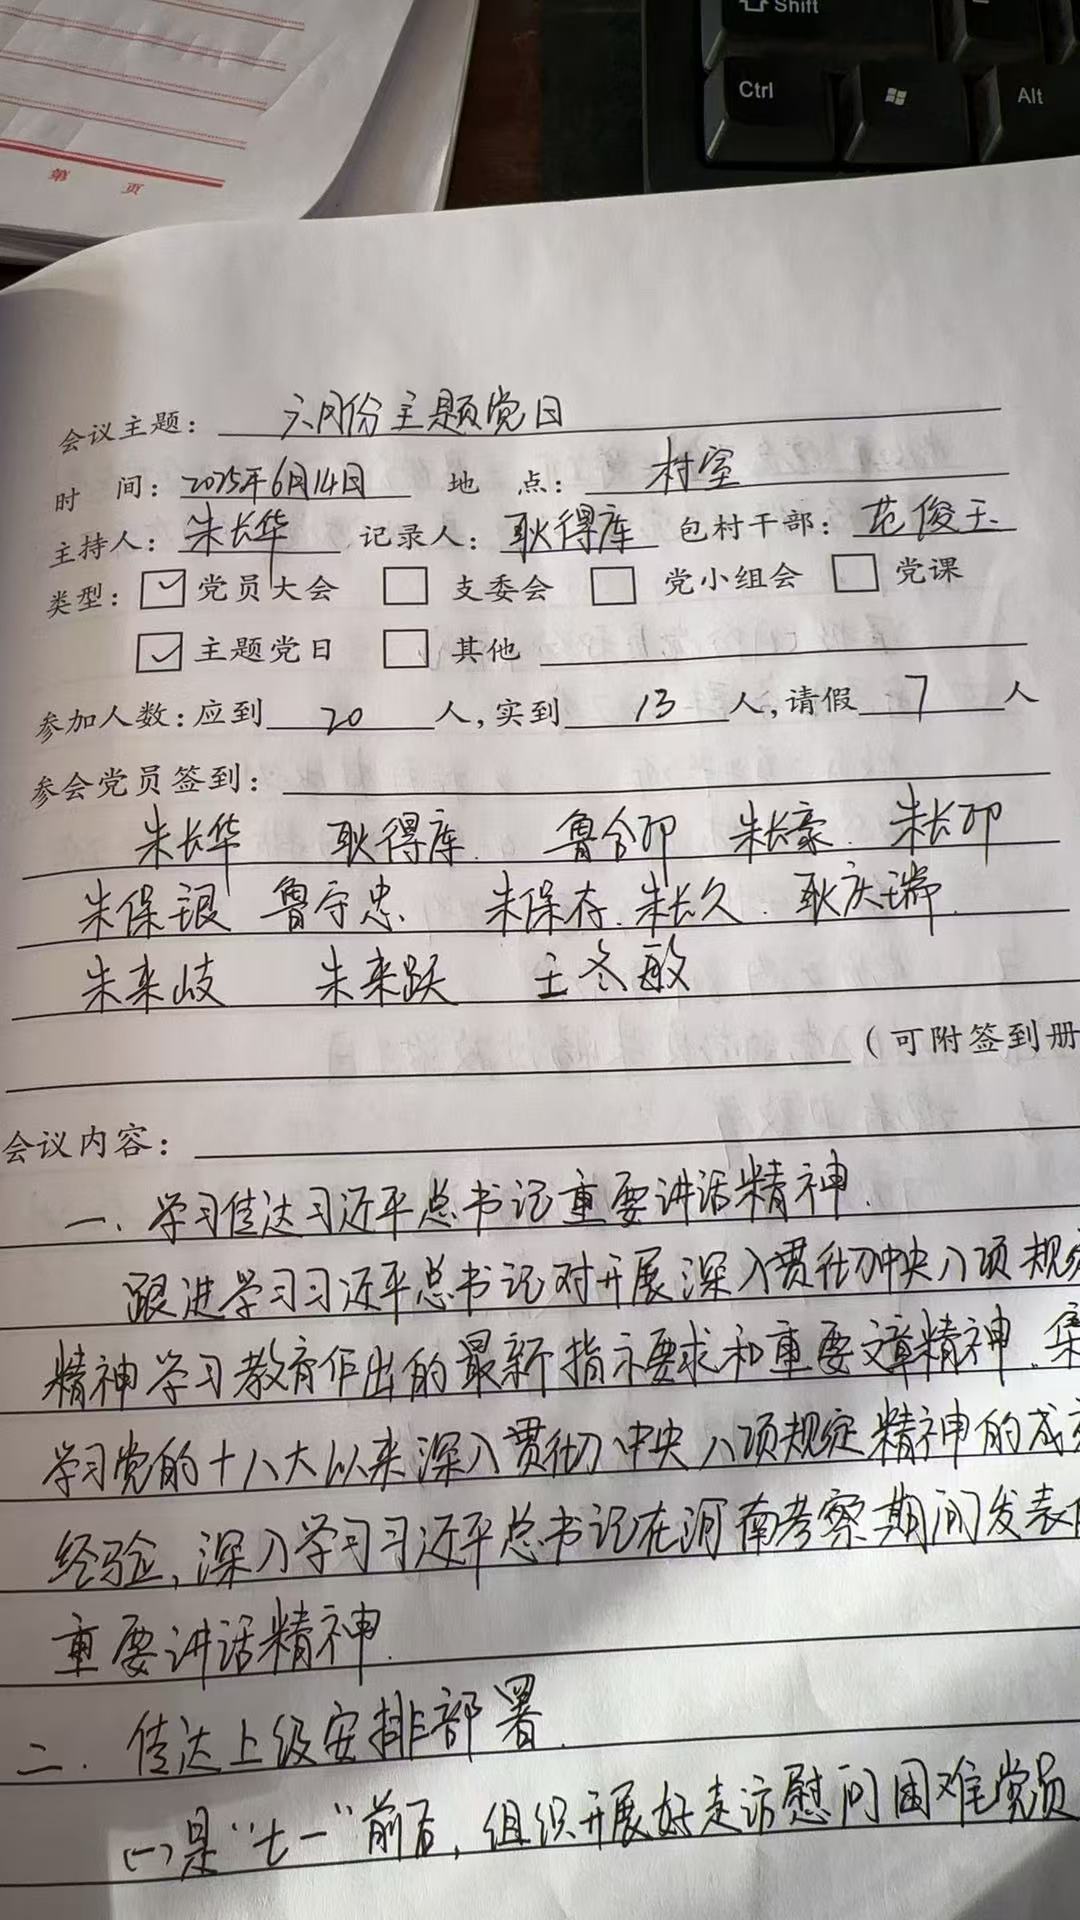 Shift
Ctrl
Alt
第 页
会议主题: 六月份主题党日
时 间: 2025年6月14日 地 点: 村室
主持人: 朱长华 记录人: 耿得库 包村干部: 范俊玉
类型: ☑ 党员大会 □ 支委会 □ 党小组会 □ 党课
☑ 主题党日 □ 其他
参加人数: 应到 20 人, 实到 13 人, 请假 7 人
参会党员签到:
朱长华 耿得库. 鲁合卯 朱长豪. 朱长卯
朱保银 鲁守忠 朱保存. 朱长久. 耿庆瑞.
朱来岐 朱来跃 王冬敏
(可附签到册
会议内容:
一、学习传达习近平总书记重要讲话精神.
跟进学习习近平总书记对开展深入贯彻中央八项规定
精神学习教育作出的最新指示要求和重要文章精神. 集
学习党的十八大以来深入贯彻中央八项规定精神的成效
经验, 深入学习习近平总书记在河南考察期间发表的
重要讲话精神.
二. 传达上级安排部署.
(一)是“七一”前后, 组织开展好走访慰问困难党员